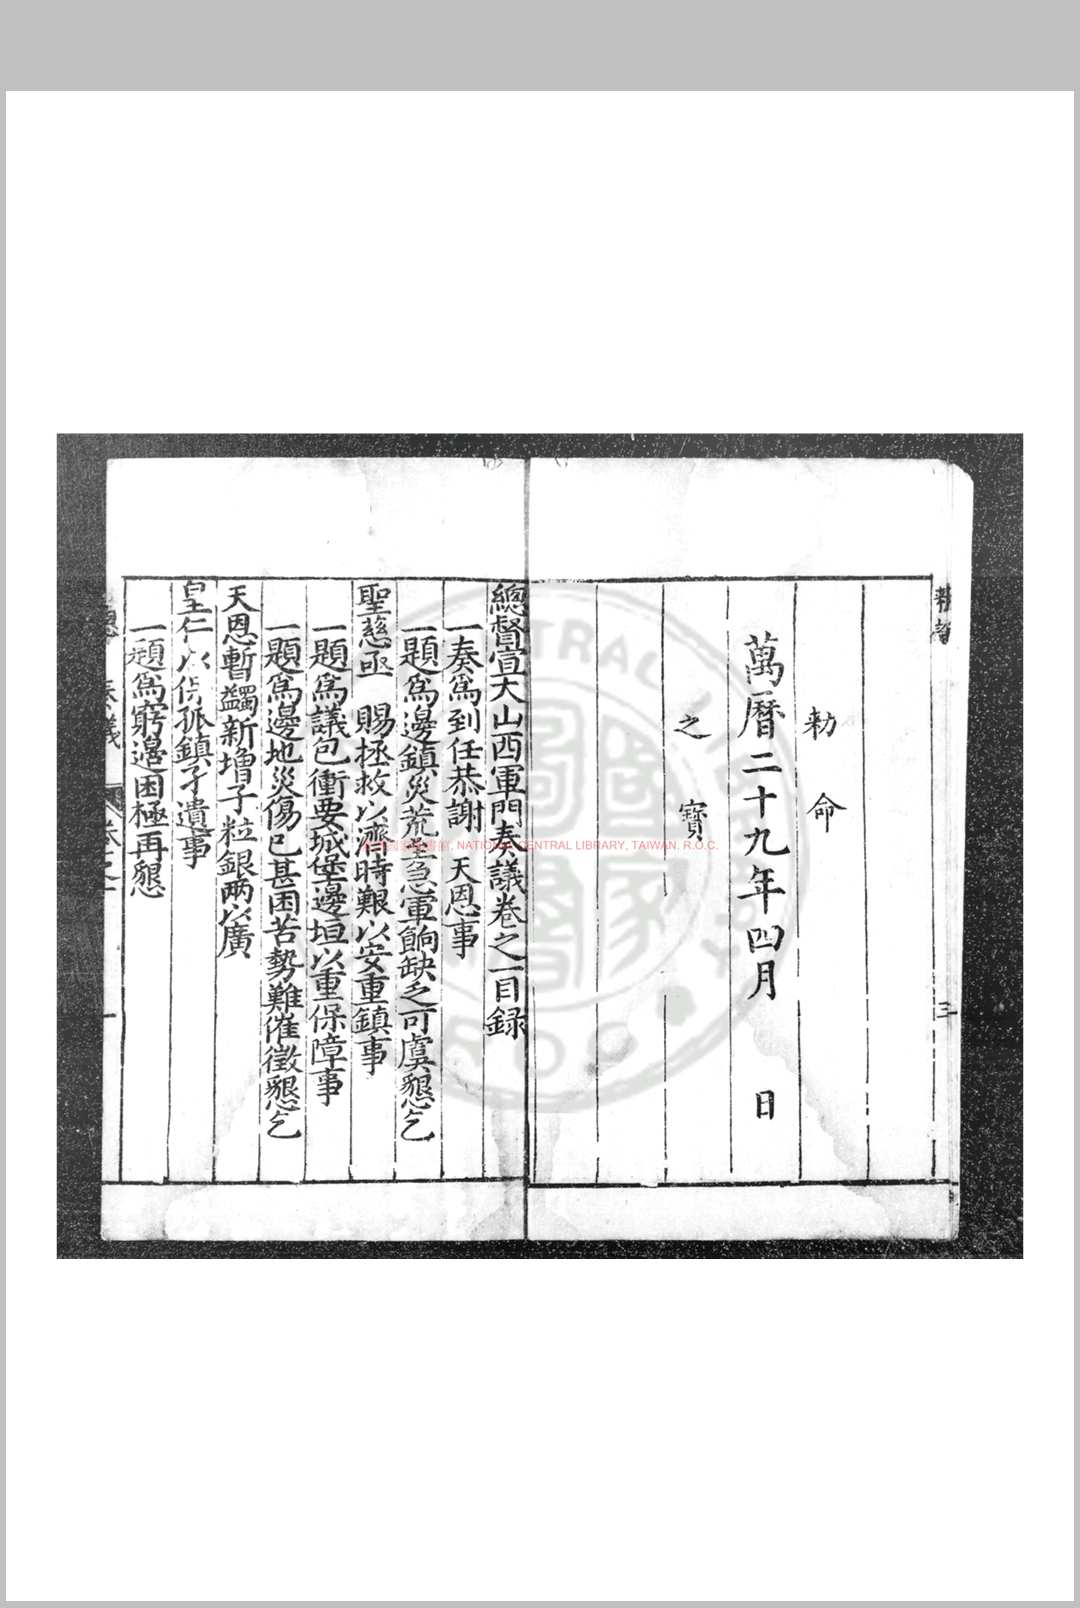 勅命
萬曆二十九年四月　日
之寶
三
總督宣大山西軍門奏議卷之一目録
一奏爲到任恭謝　天恩事
一題爲邊鎮災荒至急軍餉缺乏可虞懇乞
聖慈亟　賜拯救以濟時艱以安重鎮事
一題爲議包衝要城堡邊垣以重保障事
一題爲邊地災傷已甚困苦勢難催徵懇乞
天恩暫蠲新增子粒銀兩以廣
皇仁以保孤鎮孑遺事
一題爲窮邊困極再懇
奏議
卷之一
一
NATIONAL CENTRAL LIBRARY, TAIWAN, R.O.C.